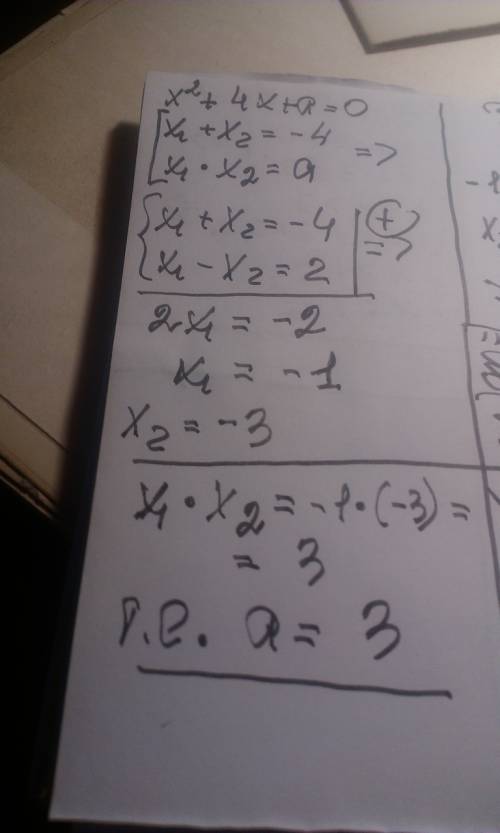 x² + 4x + a = 0
[x₁ + x₂ = -4
[x₁ · x₂ = a =>
{x₁ + x₂ = -4 | (+)
{x₁ - x₂ = 2 | =>
2x₁ = -2
x₁ = -1
x₂ = -3
x₁ · x₂ = -1 · (-3) =
= 3
т.е. a = 3